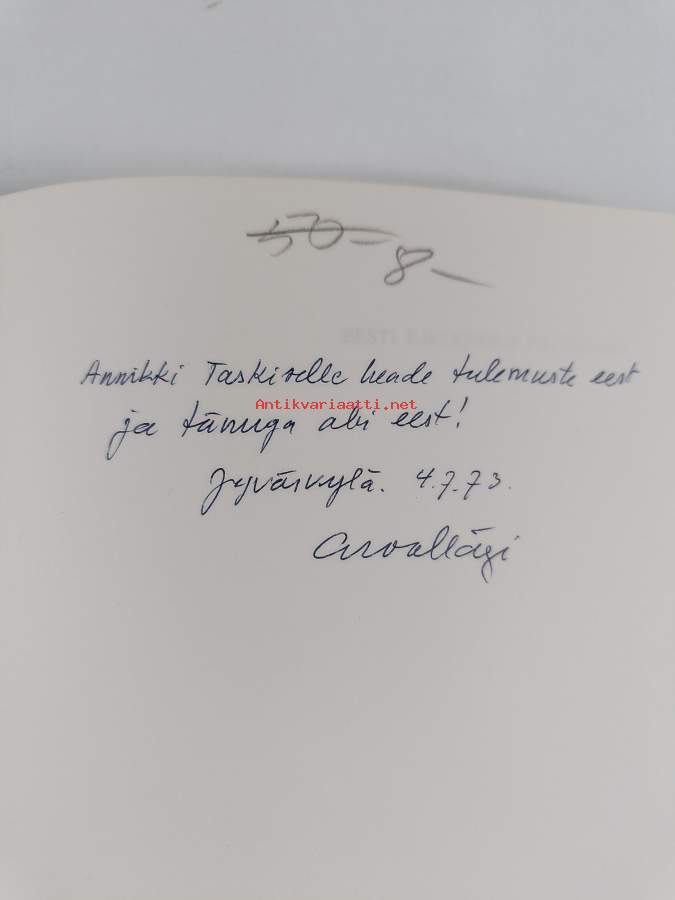 50 -
8 -
Annikki Taskiselle heade tulemuste eest
Antikvariaatti.net
ja tänuga abi eest!
Jyväskylä. 4.7.73.